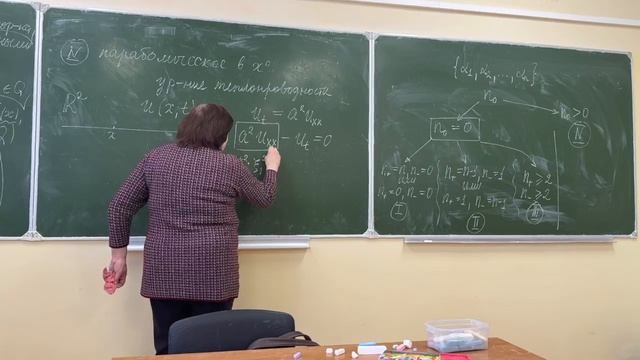 IV параболическое в x⁰
ур-ние теплопроводности
R² u(x,t) uₜ = a²uₓₓ
x a²uₓₓ − uₜ = 0
{α₁, α₂, ..., αₙ}
n₀ n₀>0
n₀ = 0 IV
n₊=n, n₋=0 n₊=n-1, n₋=1 n₊ ≥ 2
или или n₋ ≥ 2
n₊=0, n₋=n n₊=1, n₋=n-1
I II III